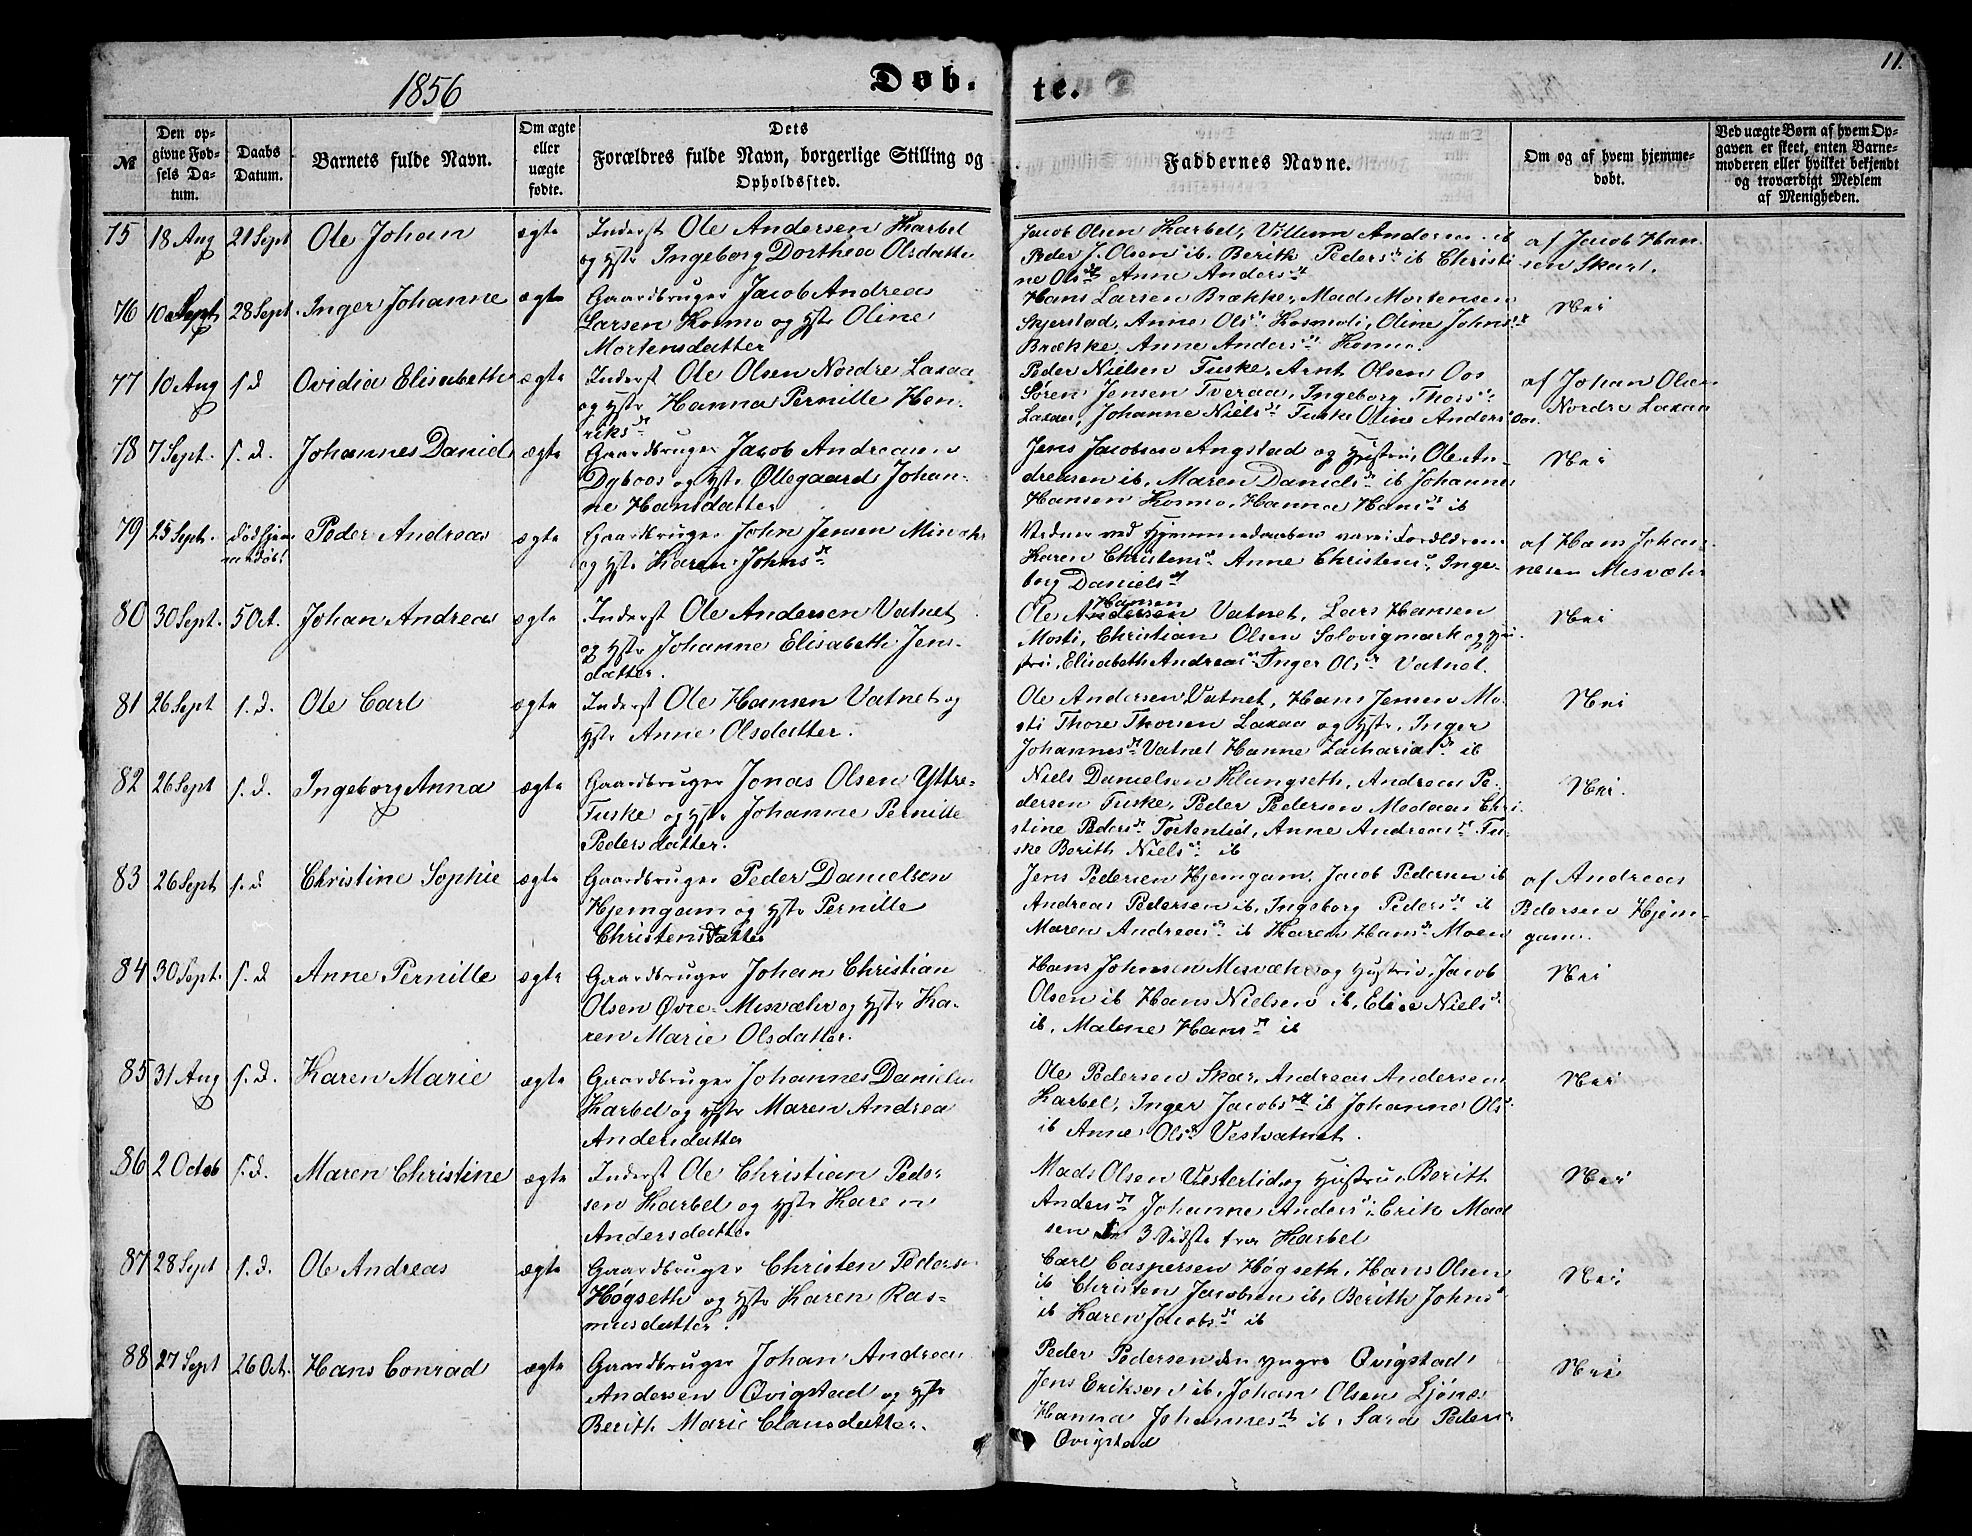 11.
1856
Døb.
te.
№
Den op-
givne Fød-
sels Da-
tum.
Daabs
Datum.
Barnets fulde Navn.
Om ægte
eller
uægte
fødte.
Dets
Forældres fulde Navn, borgerlige Stilling og
Opholdssted.
Faddernes Navne.
Om og af hvem hjemme-
døbt.
Ved uægte Børn af hvem Op-
gaven er skeet, enten Barne-
moderen eller hvilket bekjendt
og troværdigt Medlem
af Menigheden.
75 18 Aug 21 Sept Ole Johan ægte
Inderst Ole Andersen Karbel
og Hstr Ingeborg Dorthea Olsdatter
Jacob Olsen Karbel, Villum Andersen ib
Peder J. Olsen ib. Berith Peders dt ib Christi
ne Ols dt Anne Anders dt
af Jacob Han-
sen Skar.
76 10 Sept 28 Sept. Inger Johanne ægte
Gaardbruger Jacob Andreas
Larsen Kosmo og Hstr Oline
Mortensdatter
Hans Larsen Brække, Mads Mortensen
Skjerstad, Anne Ols dt Kosmoli, Oline Johns dt
Brække, Anne Anders dt Kosmo.
Nei
77 10 Aug s. d Ovidia Elisabeth ægte
Inderst Ole Olsen Nordre Laxaa
og Hstr Hanna Pernille Hen-
riks dt
Peder Nielsen Fuske, Arnt Olsen Oos
Søren Jensen Tveraa, Ingeborg Thors dt
Laxaa, Johanne Niels dt Fuske Oline Anders dt Oos.
af Johan Olsen
Nordre Laxaa
78 7 Sept. s. d. Johannes Daniel ægte
Gaardbruger Jacob Andreasen
Dyboos og Hstr Øllegaard Johan-
ne Hansdatter
Jens Jacobsen Angstad og Hustru, Ole An-
dreasen ib, Maren Daniels dt ib Johannes
Hansen Kosmo, Hanna Hans dt ib
Nei
79 25 Sept. Peder Andreas ægte
Gaardbruger John Jensen Misvær
og Hstr Karen Johns dt
Vidner ved Hjemmedaaben vare: Forældrene
Karen Christens dt Anne Christens dt, Inge-
borg Daniels dt
af Hans Johan-
nesen Misvær
80 30 Sept. 5 Oct. Johan Andreas ægte
Inderst Ole Andersen Vatnet
og Hstr Johanne Elisabeth Jens-
datter.
Hansen
Ole Andersen Vatnet, Lars Hansen
Mosti, Christian Olsen Solovigmark og Hu-
stru, Elisabeth Andreas dt Inger Ols dt Vatnet.
Nei
81 26 Sept s. d. Ole Carl ægte
Inderst Ole Hansen Vatnet og
Hstr Anne Olsdatter.
Ole Andersen Vatnet, Hans Jensen Mo-
sti Thore Thorsen Laxaa og Hstr, Inger
Johannes dt Vatnet Hanne Zacharias dt ib
Nei
82 26 Sept s. d. Ingeborg Anna ægte
Gaardbruger Jonas Olsen Yttre-
Fuske og Hstr Johanne Pernille
Pedersdatter.
Niels Danielsen Klungseth, Andreas Pe-
dersen Fuske, Peder Pedersen Modaas Chri-
stine Peders dt Tortenlid, Anne Andreas dt Fu-
ske Berith Niels dt ib
Nei.
83 26 Sept s. d Christine Sophie ægte
Gaardbruger Peder Danielsen
Hjemgam og Hstr Pernille
Christensdatter
Jens Pedersen Hjemgam, Jacob Pedersen ib
Andreas Pedersen ib, Ingeborg Peders dt ib
Maren Andreas dt ib Karen Hans dt Moen
af Andreas
Pedersen Hjem-
gam.
84 30 Sept. s. d Anne Pernille ægte
Gaardbruger Johan Christian
Olsen Øvre-Misvær og Hstr Ka-
ren Marie Olsdatter.
Hans Johnsen Misvær og Hustru, Jacob
Olsen ib Hans Nielsen ib, Elise Niels dt
ib, Malene Hans dt ib
Nei
85 31 Aug s. d. Karen Marie ægte
Gaardbruger Johannes Danielsen
Karbel og Hstr Maren Andrea
Andersdatter
Ole Pedersen Skar, Andreas Andersen
Karbel, Inger Jacobs dt ib Johanne Ols dt
ib Anne Ols dt Vestvatnet.
Nei
86 2 Octob s. d. Maren Christine ægte
Inderst Ole Christian Peder-
sen Karbel og Hstr Karen
Andersdatter.
Mads Olsen Vesterlid og Hustru, Berith
Anders dt Johanne Anders dt Erik Mad
sen 3 Sidste fra Karbel
Nei
87 28 Sept s. d. Ole Andreas ægte
Gaardbruger Christen Pedersen
Høgseth og Hstr Karen Ras-
musdatter.
Carl Caspersen Høgseth, Hans Olsen
ib Christen Jacobsen ib, Berith Johns dt
ib Karen Jacobs dt ib
Nei
88 27 Sept 26 Oct. Hans Conrad ægte
Gaardbruger Johan Andreas
Andersen Qvigstad og Hstr
Berith Marie Clausdatter.
Peder Pedersen den yngre Qvigstad,
Jens Eriksen ib, Johan Olsen Ljønæs
Hanna Johannes dt ib, Sara Peders dt
Qvigstad
Nei